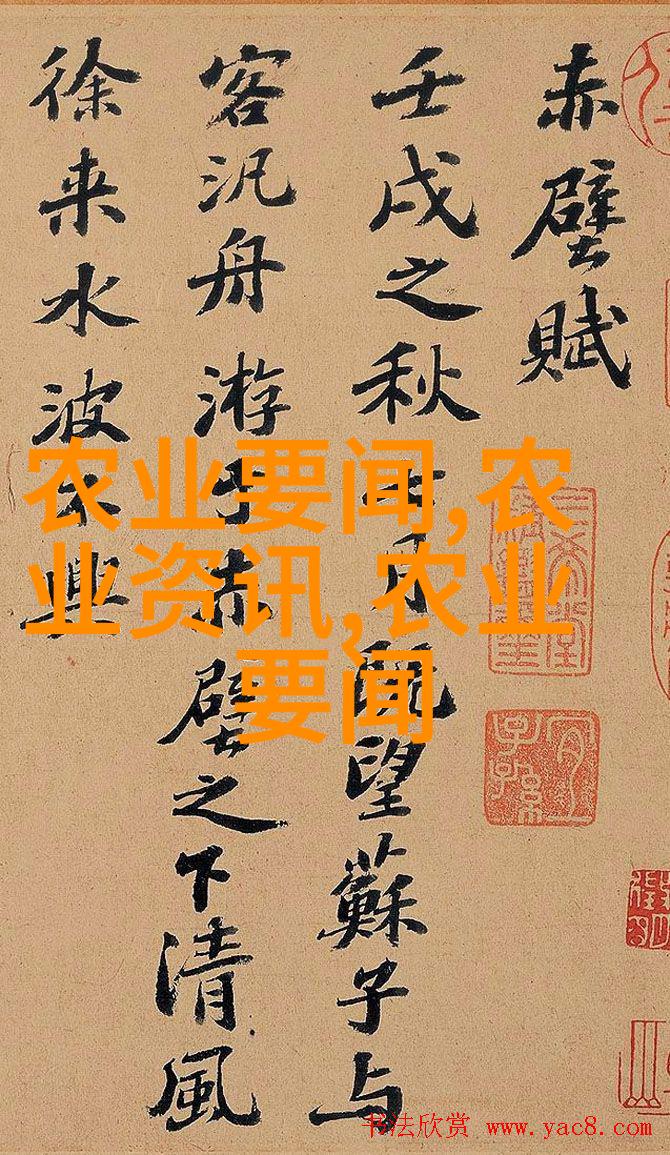 赤壁賦
壬戌之秋七月既望蘇子与
客汎舟游于赤壁之下清風
徐来水波不興
农业要闻,农
业资讯,农业
要闻
书法欣赏 www.yac8.com